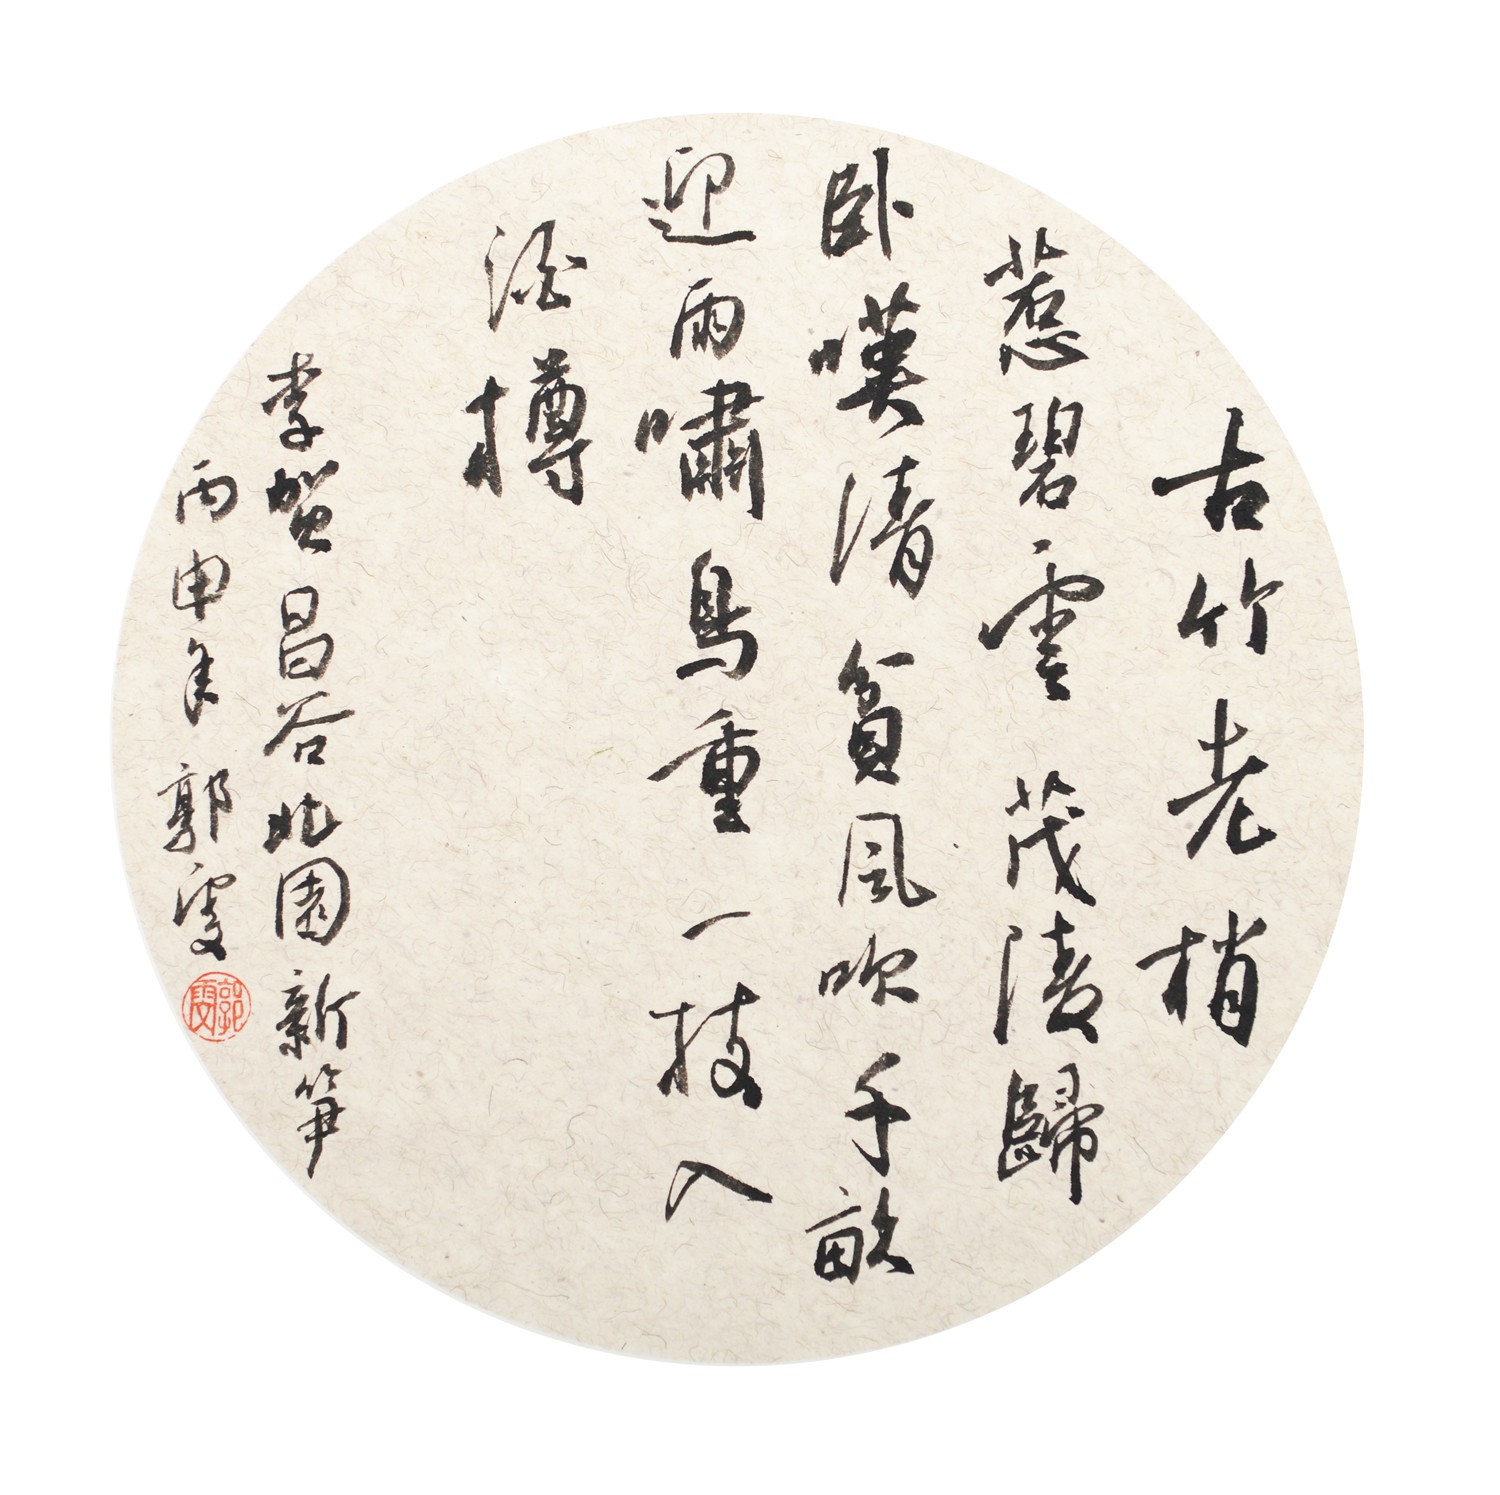 古竹老梢
惹碧雲茂陵歸
卧嘆清貧風吹千畝
迎雨嘯鳥重一枝入
酒樽
李賀昌谷北園新笋
丙申年郭雯
郭雯